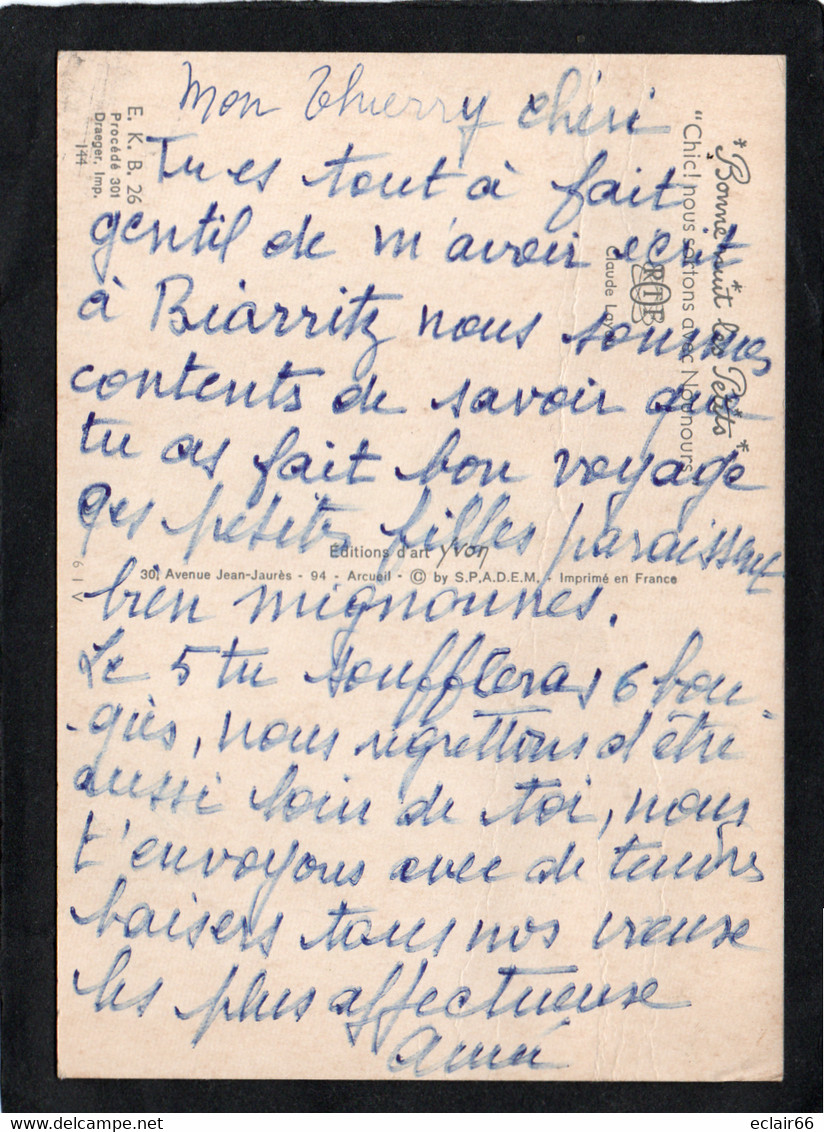 Mon Thierry chéri
Tu es tout à fait
gentil de m'avoir écrit
à Biarritz nous sommes
contents de savoir que
tu as fait bon voyage
ces petites filles paraissent
bien mignonnes.
Le 5 tu souffleras 6 bou-
gies, nous regrettons d'être
aussi loin de toi, nous
t'envoyons avec de tendres
baisers tous nos voeux
les plus affectueuse
*Bonne nuit les Petits*
"Chic! nous sortons avec Nounours
RTF
Claude Lay
E. K. B. 26
Procédé 301
Draeger, Imp.
144
Éditions d'art Yvon
30, Avenue Jean-Jaurès - 94 - Arcueil - © by S.P.A.D.E.M. - Imprimé en France
eclair66